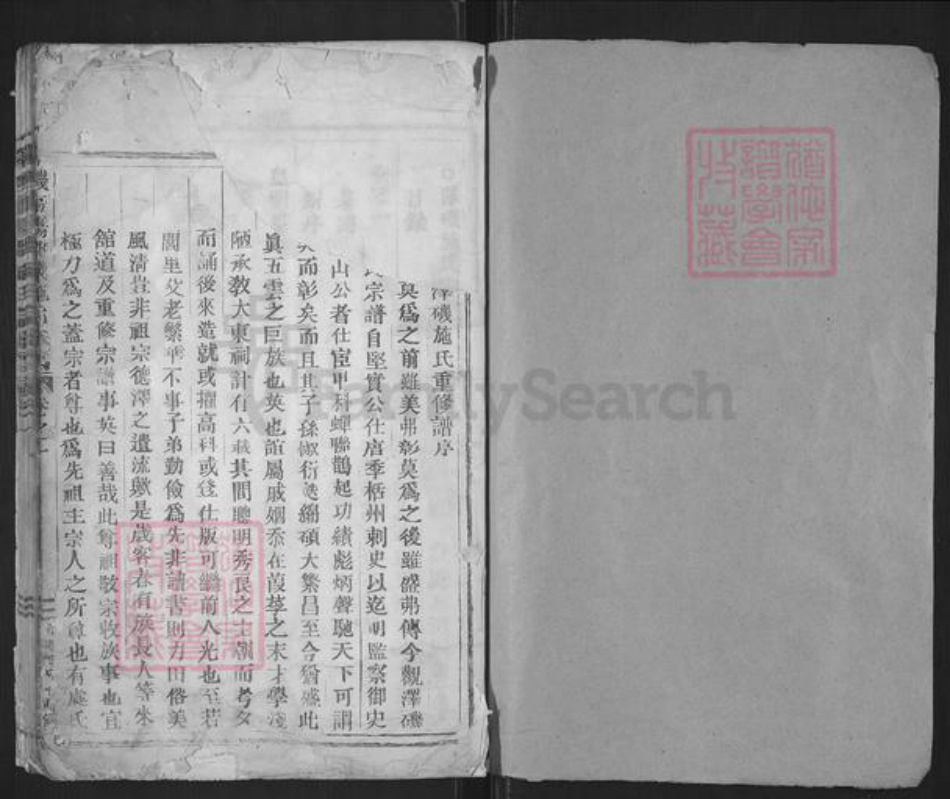 澤磯施氏重修譜序
莫爲之前雖美弗彰莫爲之後雖盛弗傳今觀澤磯
氏宗譜自堅實公仕唐季栝州刺史以迄明監察御史
山公者仕宦甲科蟬聯鵲起功績彪炳聲馳天下可謂
大而彰矣而且其子孫椒衍瓞緜碩大繁昌至今猶盛此
眞五雲之巨族也英也誼屬戚姻忝在葭莩之末才學淺
陋承敎大東祠計有六載其間聰明秀良之士朝而考夕
而誦後來造就或擢高科或登仕版可繼前人光也至若
閭里父老繁華不事子弟勤儉爲先非讀書則力田俗美
風清豈非祖宗德澤之遺流歟是歲客春有族長人等來
舘道及重修宗譜事英曰善哉此尊祖敬宗收族事也宜
極力爲之蓋宗者尊也爲先祖主宗人之所尊也有虞氏
FamilySearch